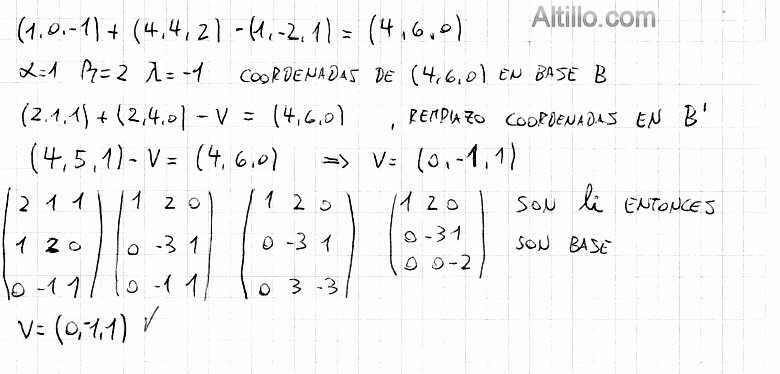 Altillo.com
(1,0,-1) + (4,4,2) - (1,-2,1) = (4,6,0)
α=1 β=2 λ=-1 COORDENADAS DE (4,6,0) EN BASE B
(2,1,1) + (2,4,0) - V = (4,6,0) , REMPLAZO COORDENADAS EN B'
(4,5,1) - V = (4,6,0) ⇒ V = (0,-1,1)
(2 1 1) (1 2 0) (1 2 0) (1 2 0) SON li ENTONCES
(1 2 0) (0 -3 1) (0 -3 1) (0 -3 1) SON BASE
(0 -1 1) (0 -1 1) (0 3 -3) (0 0 -2)
V = (0,-1,1) ✓